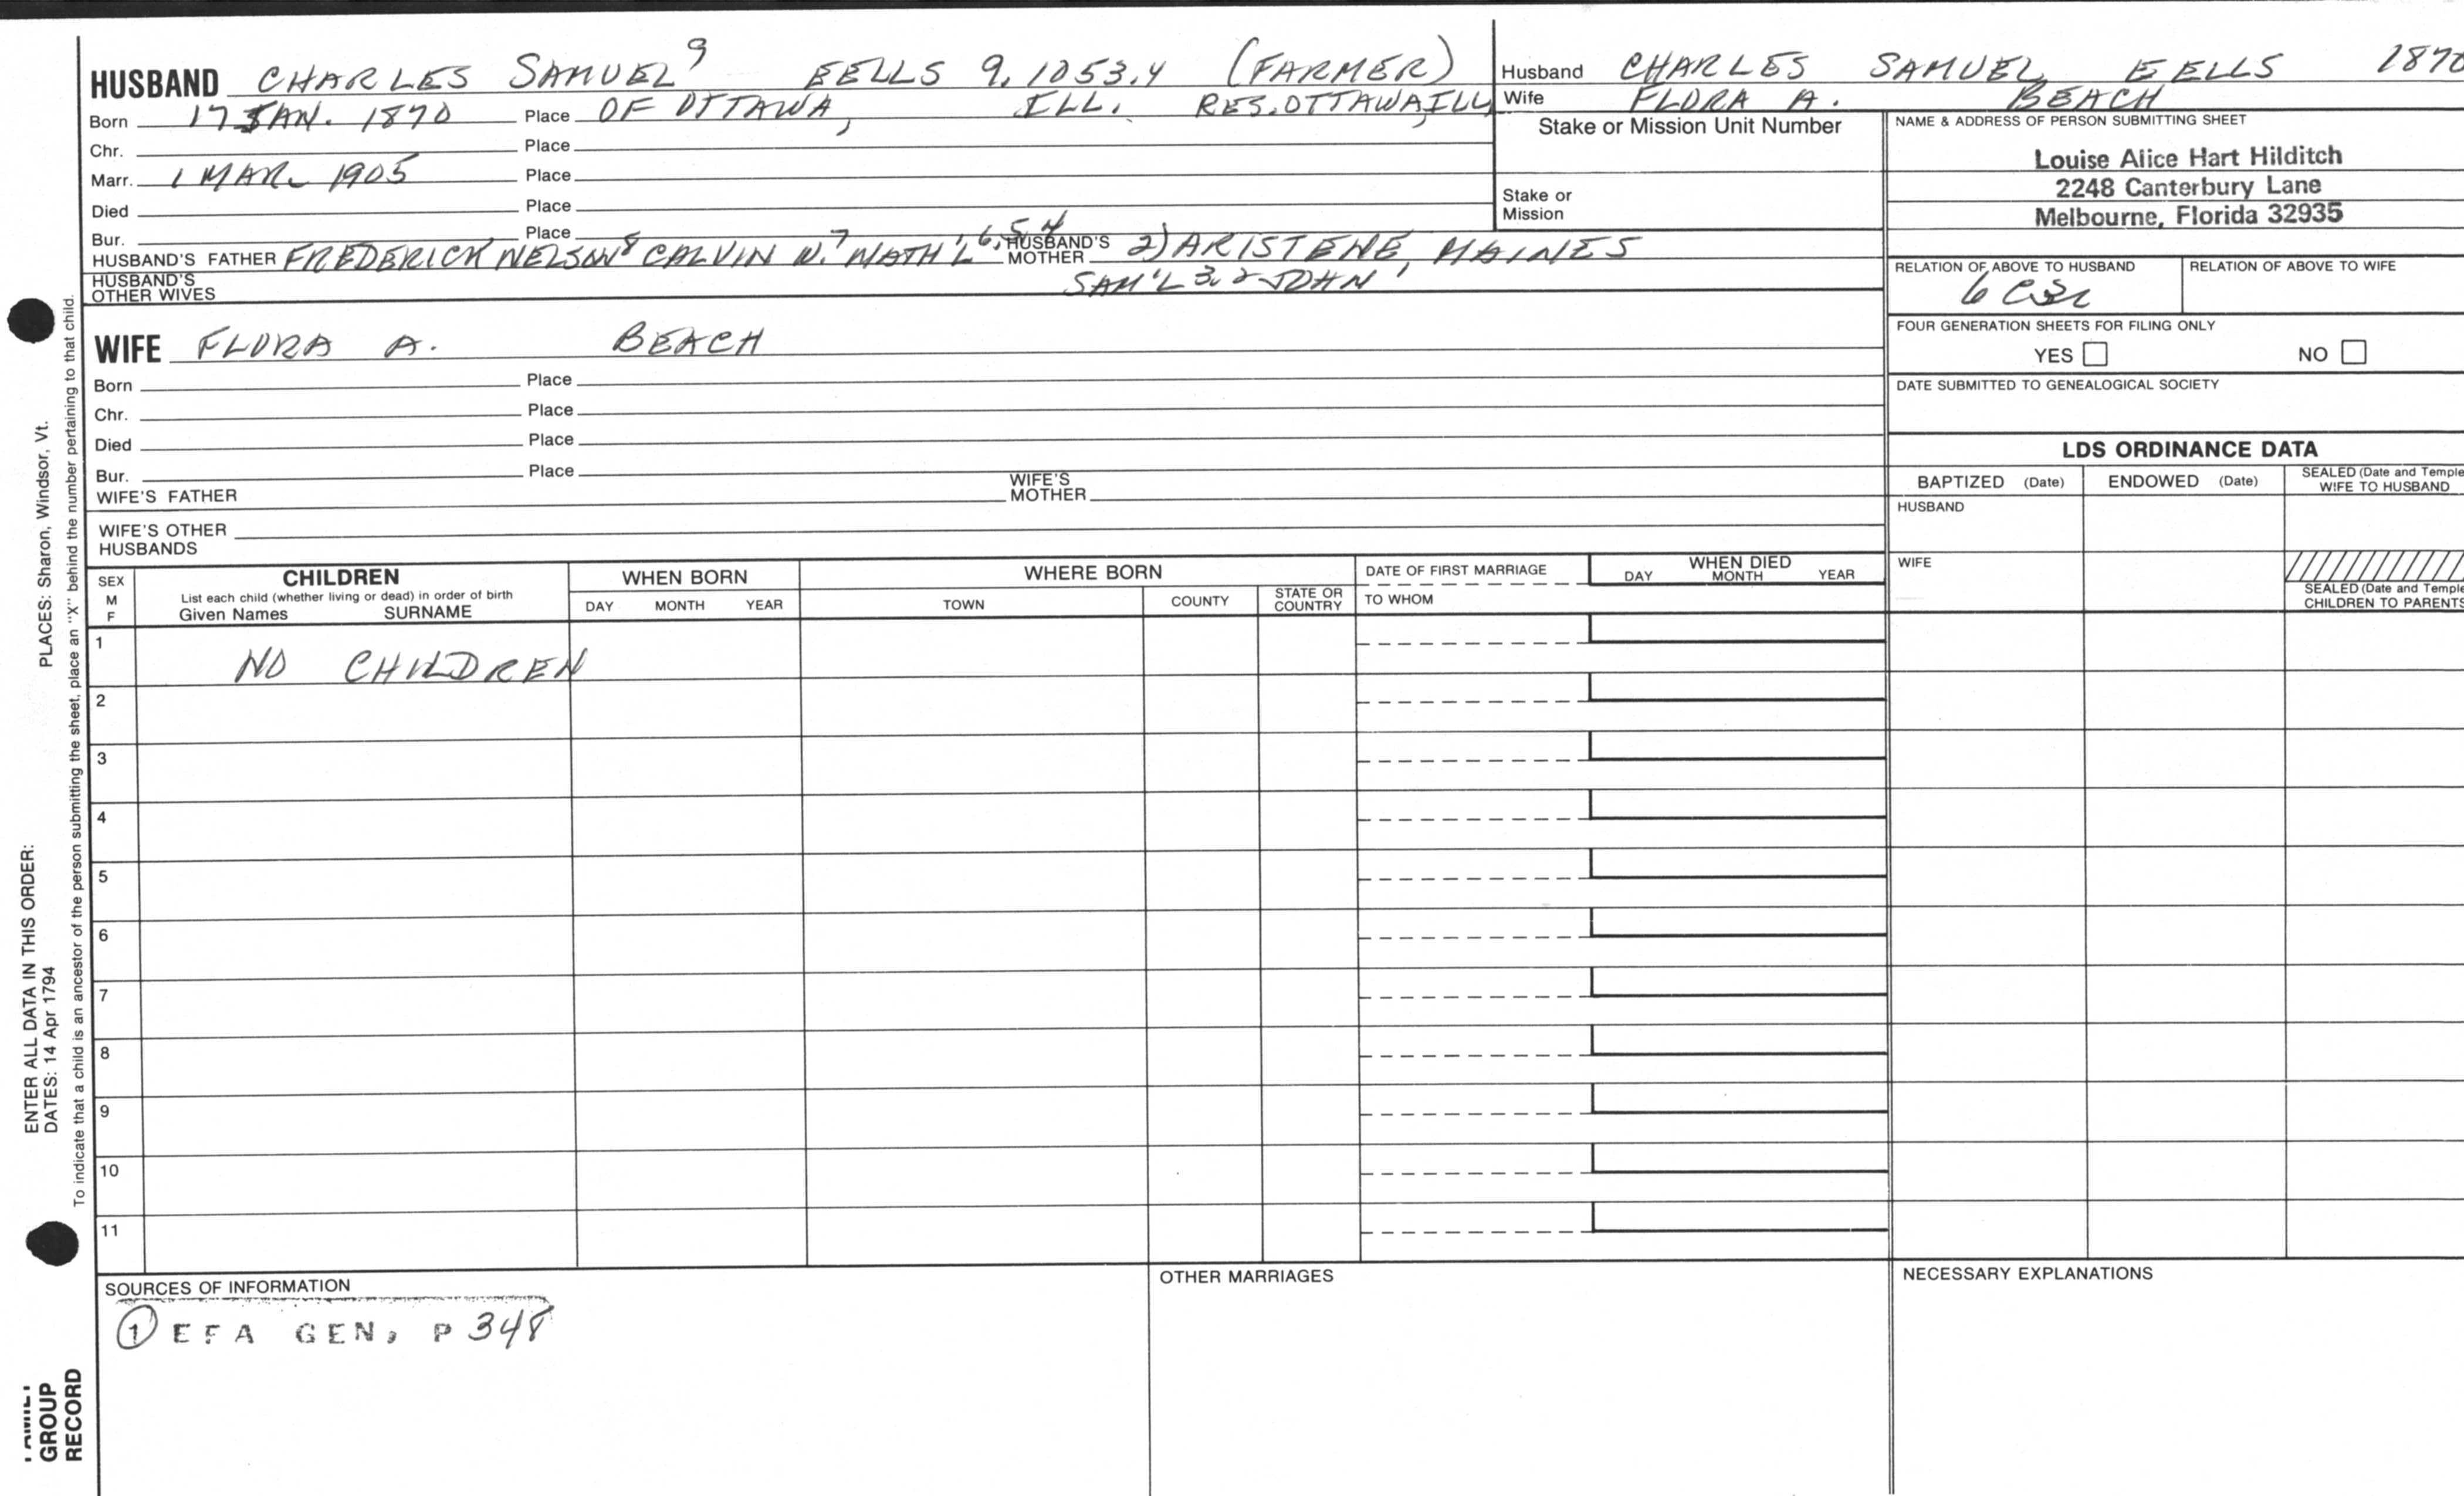 HUSBAND CHARLES SAMUEL⁹ EELLS 9.1053.4 (FARMER)
Born 17 JAN. 1870 Place OF OTTAWA, ILL. RES. OTTAWA, ILL
Chr. Place
Marr. 1 MAR. 1905 Place
Died Place
Bur. Place
HUSBAND'S FATHER FREDERICK NELSON⁸ CALVIN N.⁷ NATH'L⁶,⁵,⁴ HUSBAND'S MOTHER 2) ARISTENE MAINES
HUSBAND'S OTHER WIVES SAM'L 3, 2 JOHN¹
Husband CHARLES SAMUEL EELLS 1870
Wife FLORA A. BEACH
Stake or Mission Unit Number
Stake or
Mission
NAME & ADDRESS OF PERSON SUBMITTING SHEET
Louise Alice Hart Hilditch
2248 Canterbury Lane
Melbourne, Florida 32935
RELATION OF ABOVE TO HUSBAND RELATION OF ABOVE TO WIFE
FOUR GENERATION SHEETS FOR FILING ONLY
YES NO
DATE SUBMITTED TO GENEALOGICAL SOCIETY
WIFE FLORA A. BEACH
Born Place
Chr. Place
Died Place
Bur. Place
WIFE'S FATHER WIFE'S MOTHER
WIFE'S OTHER
HUSBANDS
LDS ORDINANCE DATA
BAPTIZED (Date) ENDOWED (Date) SEALED (Date and Temple
WIFE TO HUSBAND
HUSBAND
WIFE
SEALED (Date and Temple
CHILDREN TO PARENTS
SEX
M
F
CHILDREN
List each child (whether living or dead) in order of birth
Given Names SURNAME
WHEN BORN
DAY MONTH YEAR
WHERE BORN
TOWN COUNTY STATE OR COUNTRY
DATE OF FIRST MARRIAGE
TO WHOM
WHEN DIED
DAY MONTH YEAR
1 NO CHILDREN
2
3
4
5
6
7
8
9
10
11
SOURCES OF INFORMATION
① EFA GEN, P 348
OTHER MARRIAGES
NECESSARY EXPLANATIONS
ENTER ALL DATA IN THIS ORDER:
DATES: 14 Apr 1794 PLACES: Sharon, Windsor, Vt.
To indicate that a child is an ancestor of the person submitting the sheet, place an "X" behind the number pertaining to that child.
GROUP
RECORD